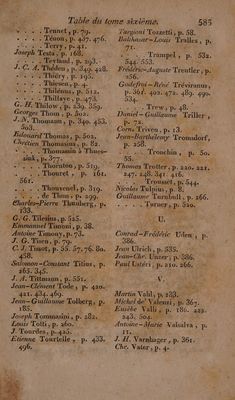 Table du tome sixième. 585
. . . . Tennet, p. 79.
. . . . Ténon, p. 437. 476.
. . . . Terry, p. 41.
Joseph Testa, p. 168.
. . . . Teyland, p. 293.
J. C. A. Théden, p. 349. 428.
. . . . Thiéry, p. 195.
. . . . Thiesen, p. 4.
. . . . Thilénius, p. 512.
. . . . Thillaye, p. 473.
G. H. Thilow, p. 239. 359.
Georges Thom, p. 502.
J. N. Thomann, p. 349. 453.
503.
Edouard Thomas, p. 502.
Chrétien Thomasius, p. 82
. . . . Thomassin à Thues-
sink, p. 377.
. . . . Thornton, p. 519.
. . . . Thouret, p. 161.
561.
. . . . Thouvenel, p. 319.
. . . . de Thou, p. 299.
Charles-Pierre Thunberg, p.
133.
G. G. Tilesius, p. 525.
Emmanuel Timoni, p. 38.
Antoine Timony, p. 73.
J. G. Tisen, p. 79.
C. J. Tissot, p. 55. 57. 76. 80.
458.
Salomon-Constant Titius, p.
265. 345.
J. A. Tittmann, p. 551.
Jean-Clément Tode, p. 420.
421. 434. 469.
Jean-Guillaume Tolberg, p.
185.
Joseph Tommasini, p. 282.
Louis Totti, p. 260.
J. Tourdes, p. 425.
Etienne Tourtelle, p. 433.
496.
Turgioni Tozzetti, p. 58.
Balthasar-Louis Tralles, p.
71.
. . . . Trampel, p. 532.
544. 553.
Frédéric-Auguste Treutler, p.
256.
Godefroi-René Tréviranus,
p. 361. 402. 472. 489. 499.
534.
. . . . Trew, p. 48.
Daniel-Guillaume Triller,
p. 72.
Corn. Triven, p. 13.
Jean-Barthélemy Tromsdorf,
p. 258.
. . . . Tronchin, p. 50.
55.
Thomas Trotter, p. 220. 221.
247. 248. 341. 416.
. . . . Trousset, p. 544.
Nicolas Tulpius, p. 8.
Guillaume Turnbull, p. 166.
. . . . Turney, p. 320.
U.
Conrad-Frédéric Uden, p.
386.
Jean Ulrich, p. 535.
Jean-Chr. Unzer, p. 386.
Paul Ustéri, p. 210. 266.
V.
Martin Vahl, p. 133.
Michel de Valenzi, p. 367.
Eusèbe Valli, p. 180. 222.
243. 504.
Antoine-Marie Valsalva, p.
11.
J. H. Varnhager, p. 361.
Chr. Vater, p. 4.